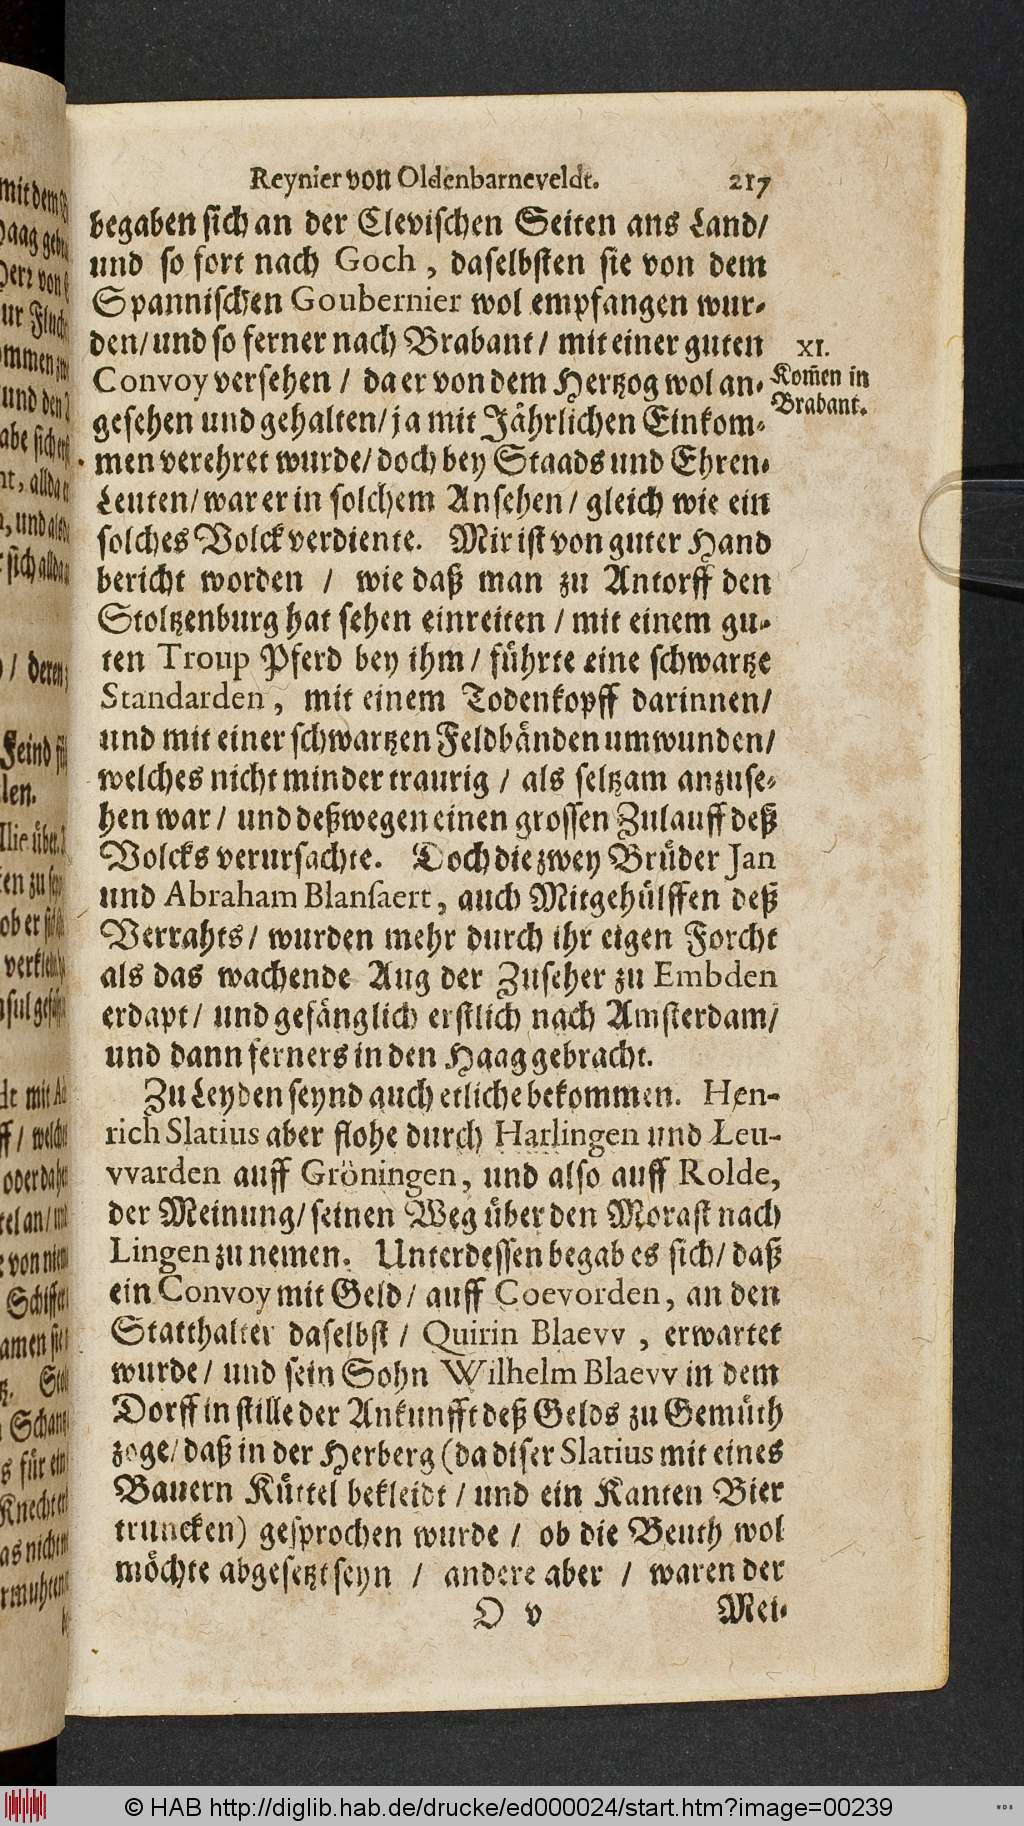 Reynier von Oldenbarneveldt. 217
begaben sich an der Clevischen Seiten ans Land/
und so fort nach Goch, daselbsten sie von dem
Spannischen Goubernier wol empfangen wur-
den/ und so ferner nach Brabant/ mit einer guten
XI.
Convoy versehen/ da er von dem Hertzog wol an-
Kom̄en in
Brabant.
gesehen und gehalten/ ja mit Jährlichen Einkom-
men verehret wurde/ doch bey Staads und Ehren-
Leuten/ war er in solchem Ansehen/ gleich wie ein
solches Volck verdiente. Mir ist von guter Hand
bericht worden/ wie daß man zu Antorff den
Stoltzenburg hat sehen einreiten/ mit einem gu-
ten Troup Pferd bey ihm/ führte eine schwartze
Standarden, mit einem Todenkopff darinnen/
und mit einer schwartzen Feldbänden umwunden/
welches nicht minder traurig/ als seltzam anzuse-
hen war/ und deßwegen einen grossen Zulauff deß
Volcks verursachte. Doch die zwey Brüder Jan
und Abraham Blansaert, auch Mitgehülffen deß
Verrahts/ wurden mehr durch ihr eigen Forcht
als das wachende Aug der Zuseher zu Embden
erdapt/ und gefänglich erstlich nach Amsterdam/
und dann ferners in den Haag gebracht.
Zu Leyden seynd auch etliche bekommen. Hen-
rich Slatius aber flohe durch Harlingen und Leu-
vvarden auff Gröningen, und also auff Rolde,
der Meinung/ seinen Weg über den Morast nach
Lingen zu nemen. Unterdessen begab es sich/ daß
ein Convoy mit Geld/ auff Coevorden, an den
Statthalter daselbst/ Quirin Blaevv, erwartet
wurde/ und sein Sohn Wilhelm Blaevv in dem
Dorff in stille der Ankunfft deß Gelds zu Gemüth
zoge/ daß in der Herberg (da diser Slatius mit eines
Bauern Küttel bekleidt/ und ein Kanten Bier
truncken) gesprochen wurde/ ob die Beuth wol
möchte abgesetzt seyn/ andere aber/ waren der
O v Mei-
© HAB http://diglib.hab.de/drucke/ed000024/start.htm?image=00239